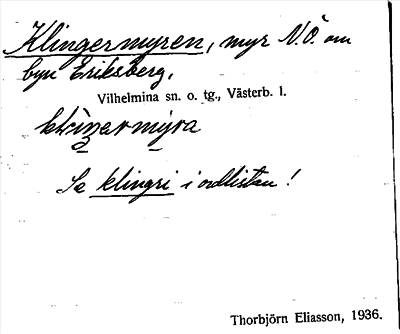 Klingermyren, myr N.Ö. om
byn Eriksberg.
Vilhelmina sn. o. tg., Västerb. l.
Se klingri i ordlistan!
Thorbjörn Eliasson, 1936.